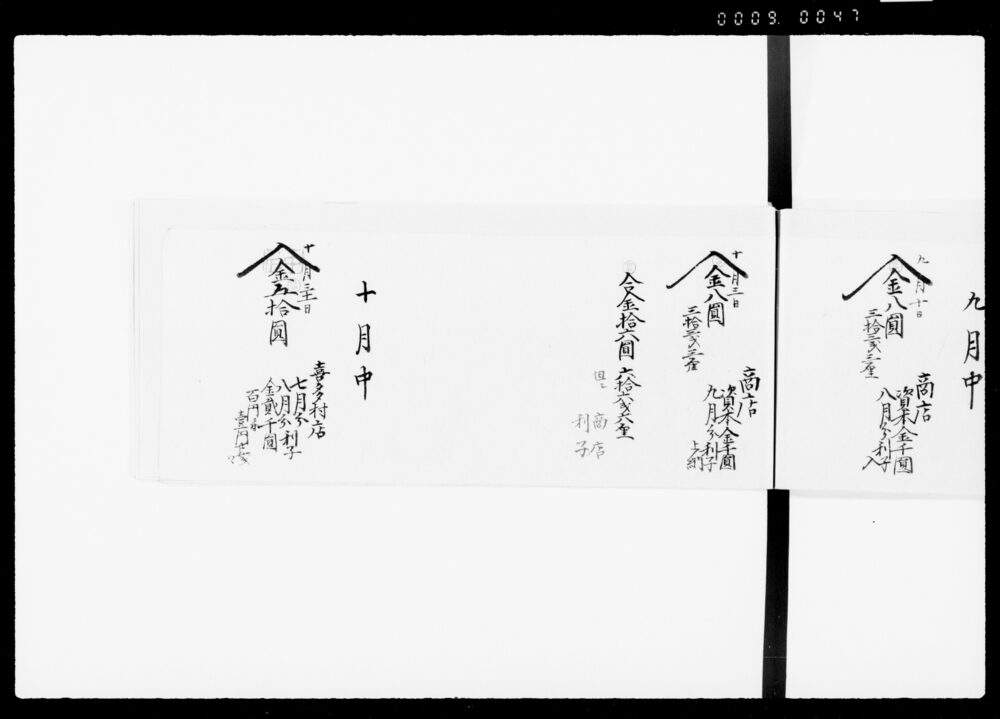 0009.0047
九月中
九月十日
金八圓
三拾三戔三厘
商店
資本金千圓
八月分利子
入
十月三日
金八圓
三拾三戔三厘
商店
資本金千圓
九月分利子
上納
合金拾六圓六拾六戔六厘
但シ
商店
利子
十月中
金五拾圓
喜多村店
七月分
八月分利子
金貳千圓
百円ニ付